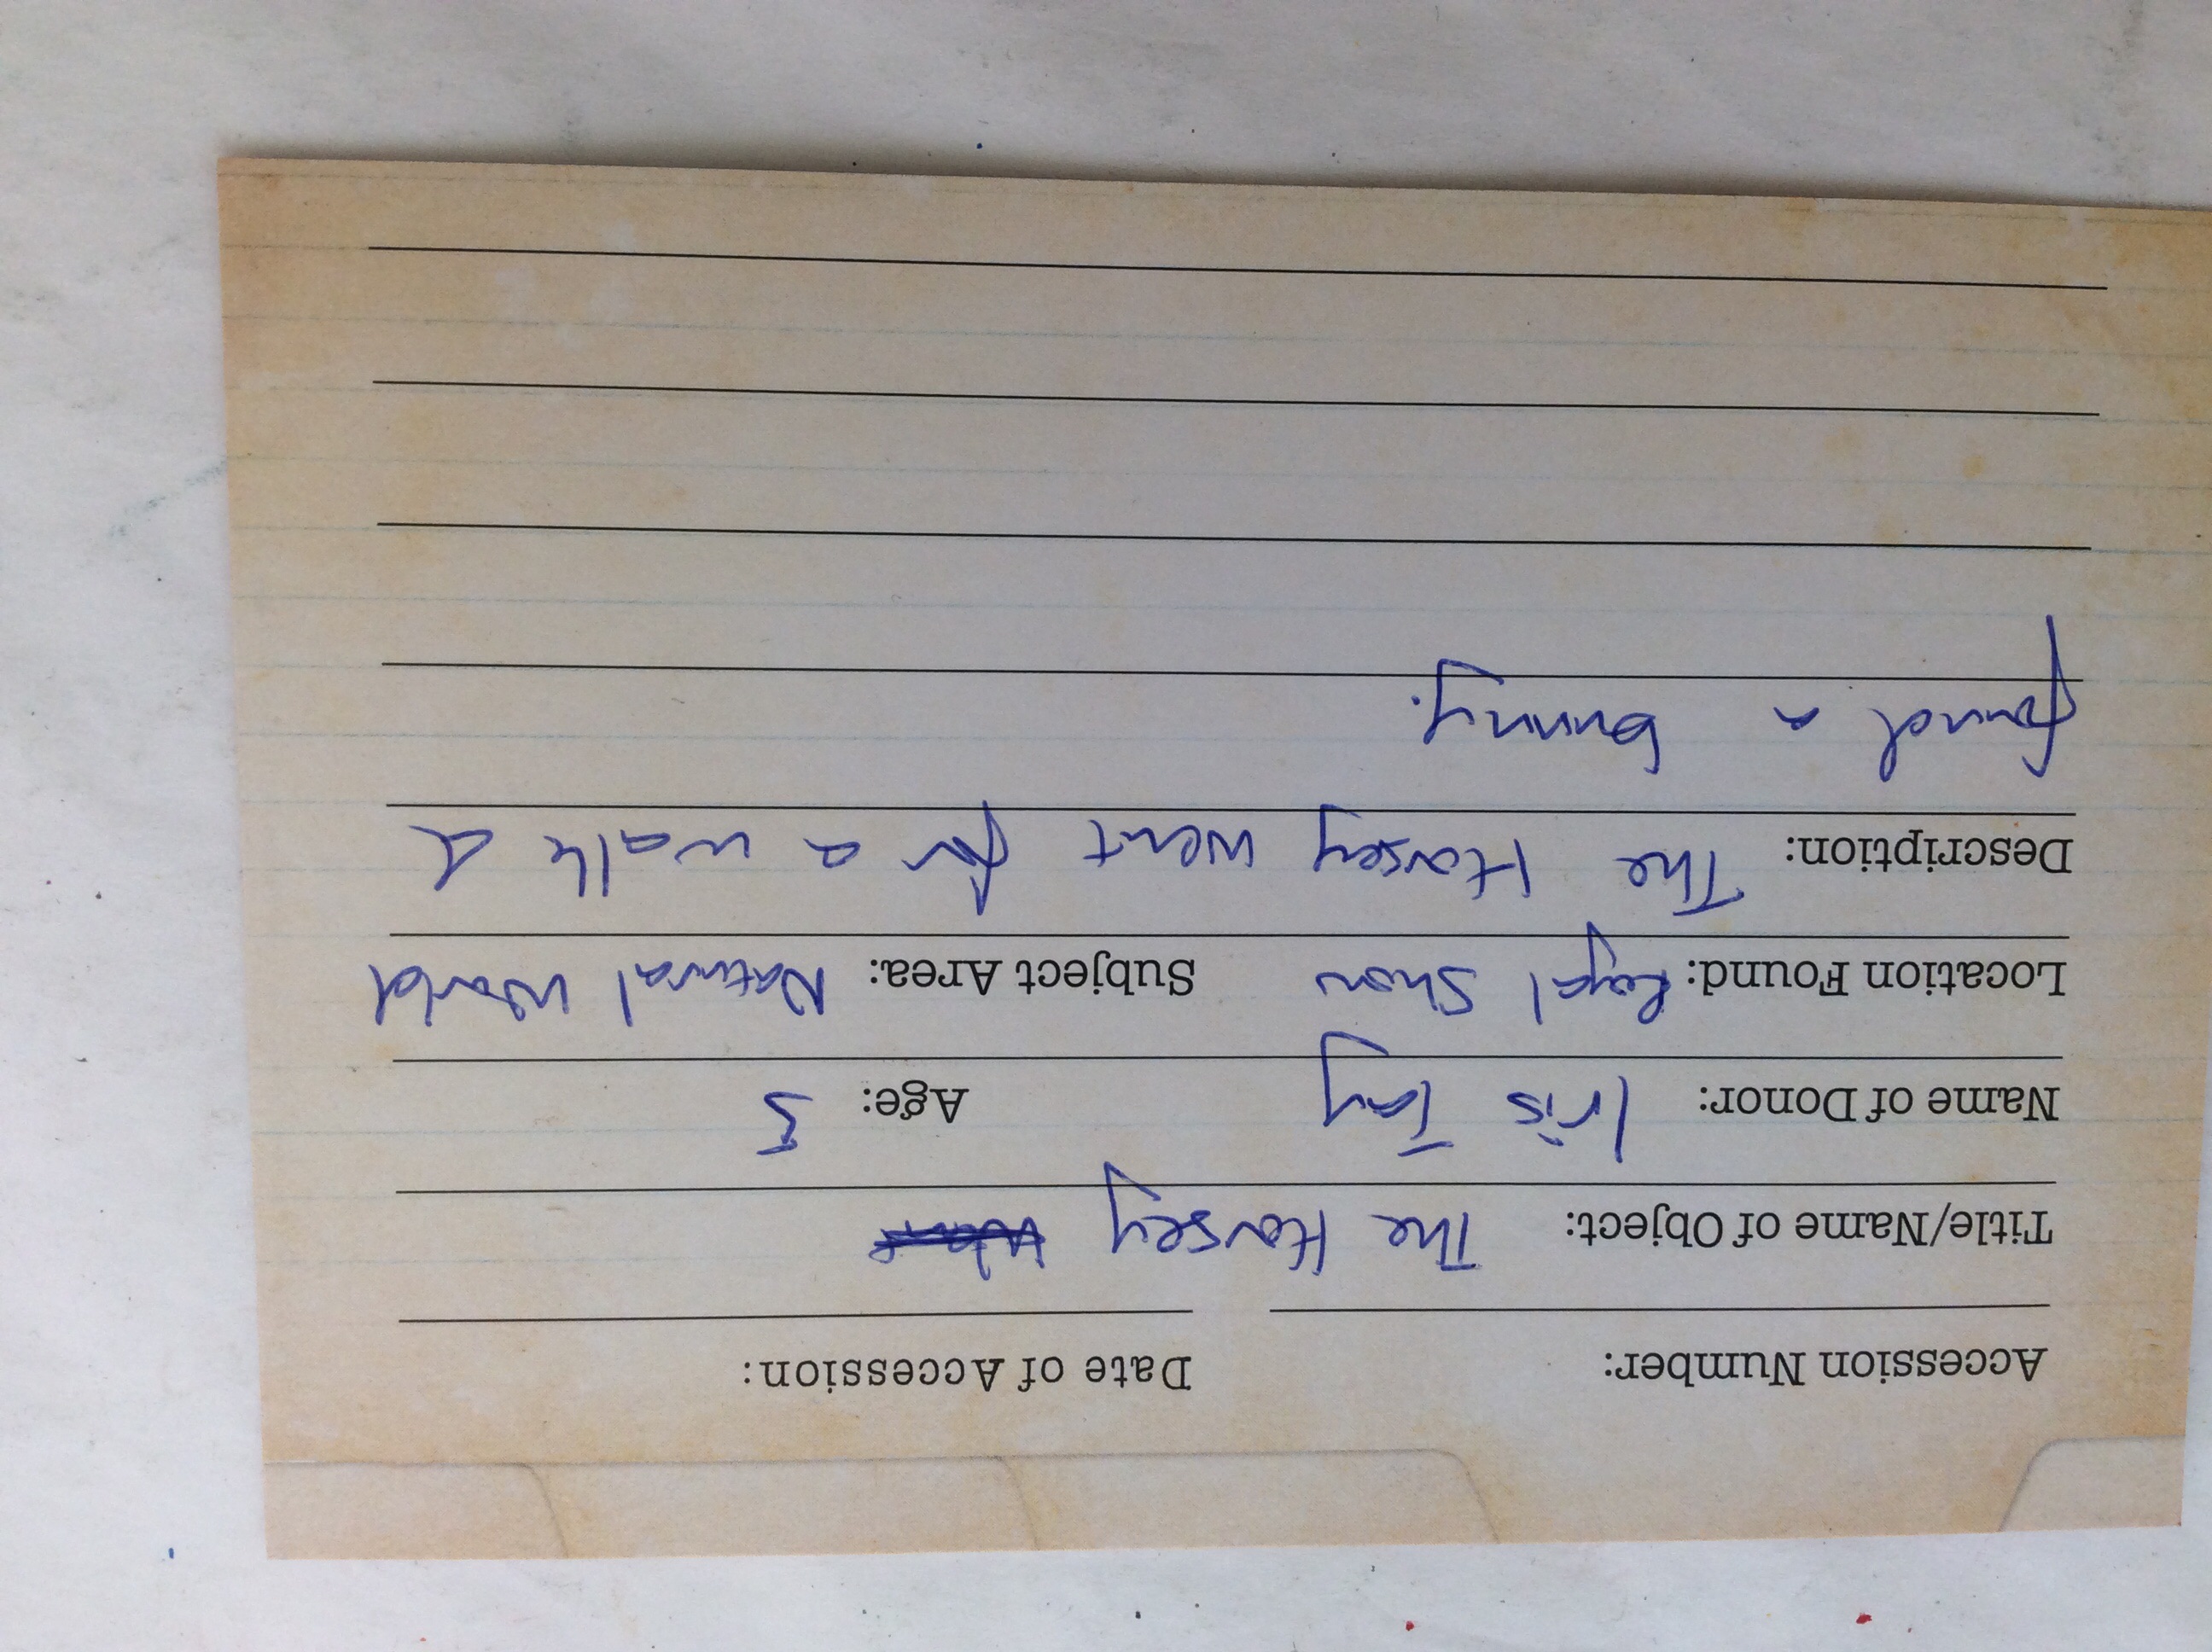 Accession Number: Date of Accession:
Title/Name of Object: The Horsey
Name of Donor: Iris Tay Age: 5
Location Found: Royal Show Subject Area: Natural World
Description: The Horsey went for a walk &
found a bunny.